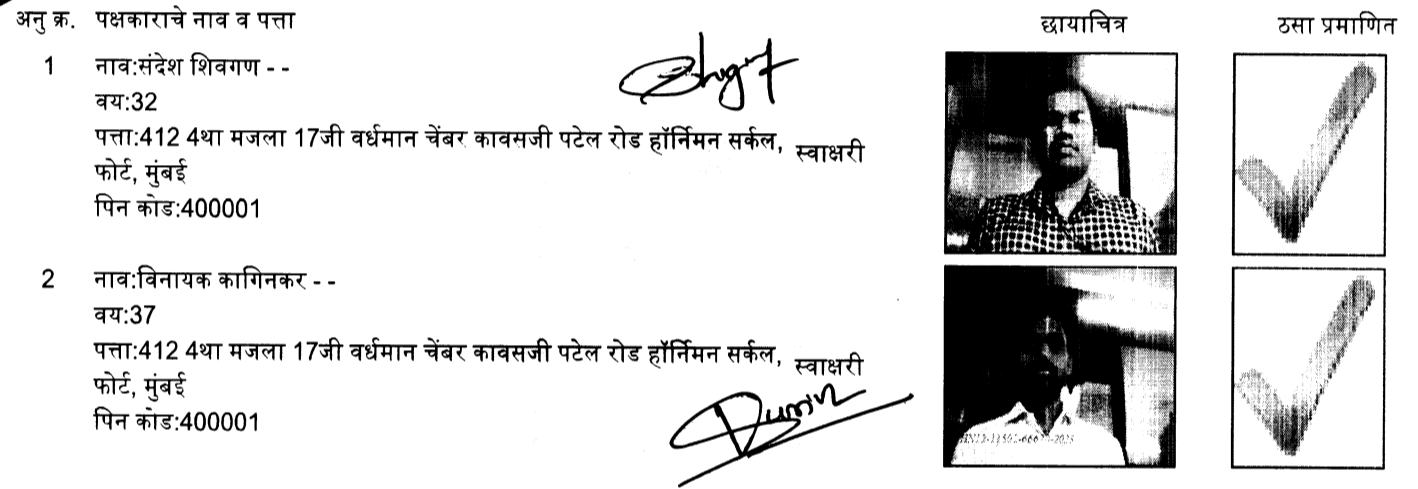 अनु क्र. पक्षकाराचे नाव व पत्ता छायाचित्र ठसा प्रमाणित
1 नाव:संदेश शिवगण - -
वय:32
पत्ता:412 4था मजला 17जी वर्धमान चेंबर कावसजी पटेल रोड हॉर्निमन सर्कल, स्वाक्षरी
फोर्ट, मुंबई
पिन कोड:400001
2 नाव:विनायक कागिनकर - -
वय:37
पत्ता:412 4था मजला 17जी वर्धमान चेंबर कावसजी पटेल रोड हॉर्निमन सर्कल, स्वाक्षरी
फोर्ट, मुंबई
पिन कोड:400001